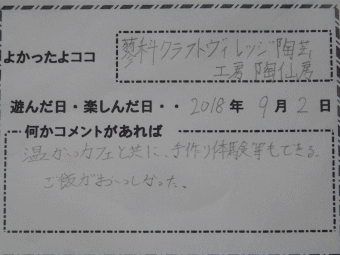 よかったよココ
蓼科クラフトヴィレッジ陶芸
工房 陶仙房
遊んだ日・楽しんだ日・・ 2018 年 9 月 2 日
何かコメントがあれば
温かいカフェと共に、手作り体験等もできる。
ご飯がおいしかった。